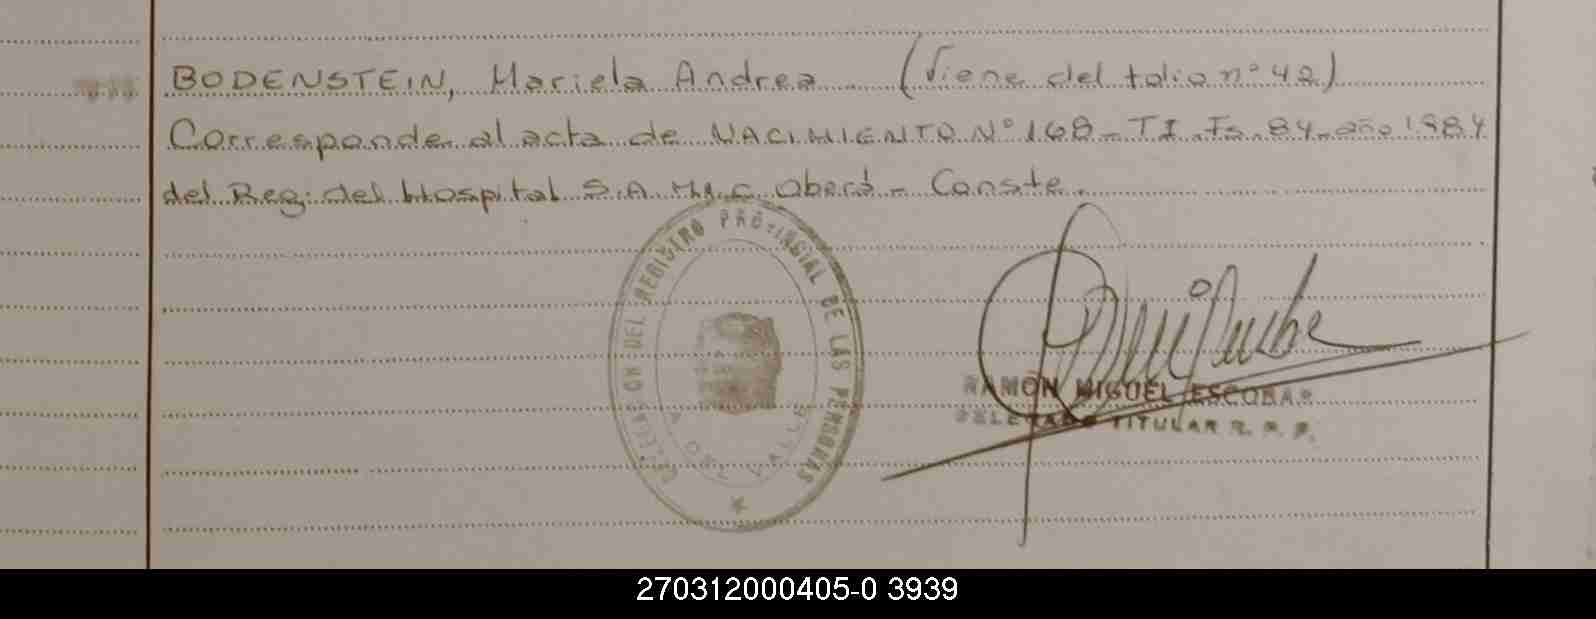 BODENSTEIN, Mariela Andrea (Viene del folio nº 42)
Corresponde al acta de NACIMIENTO Nº 168 - TI. Fs. 84 - año 1984
del Reg. del Hospital S.A.M.I.C. Oberá - Conste.
DELEGACION DEL REGISTRO PROVINCIAL DE LAS PERSONAS
DEL VALLE
RAMON MIGUEL ESCOBAR
DELEGADO TITULAR R. P. P.
270312000405-0 3939